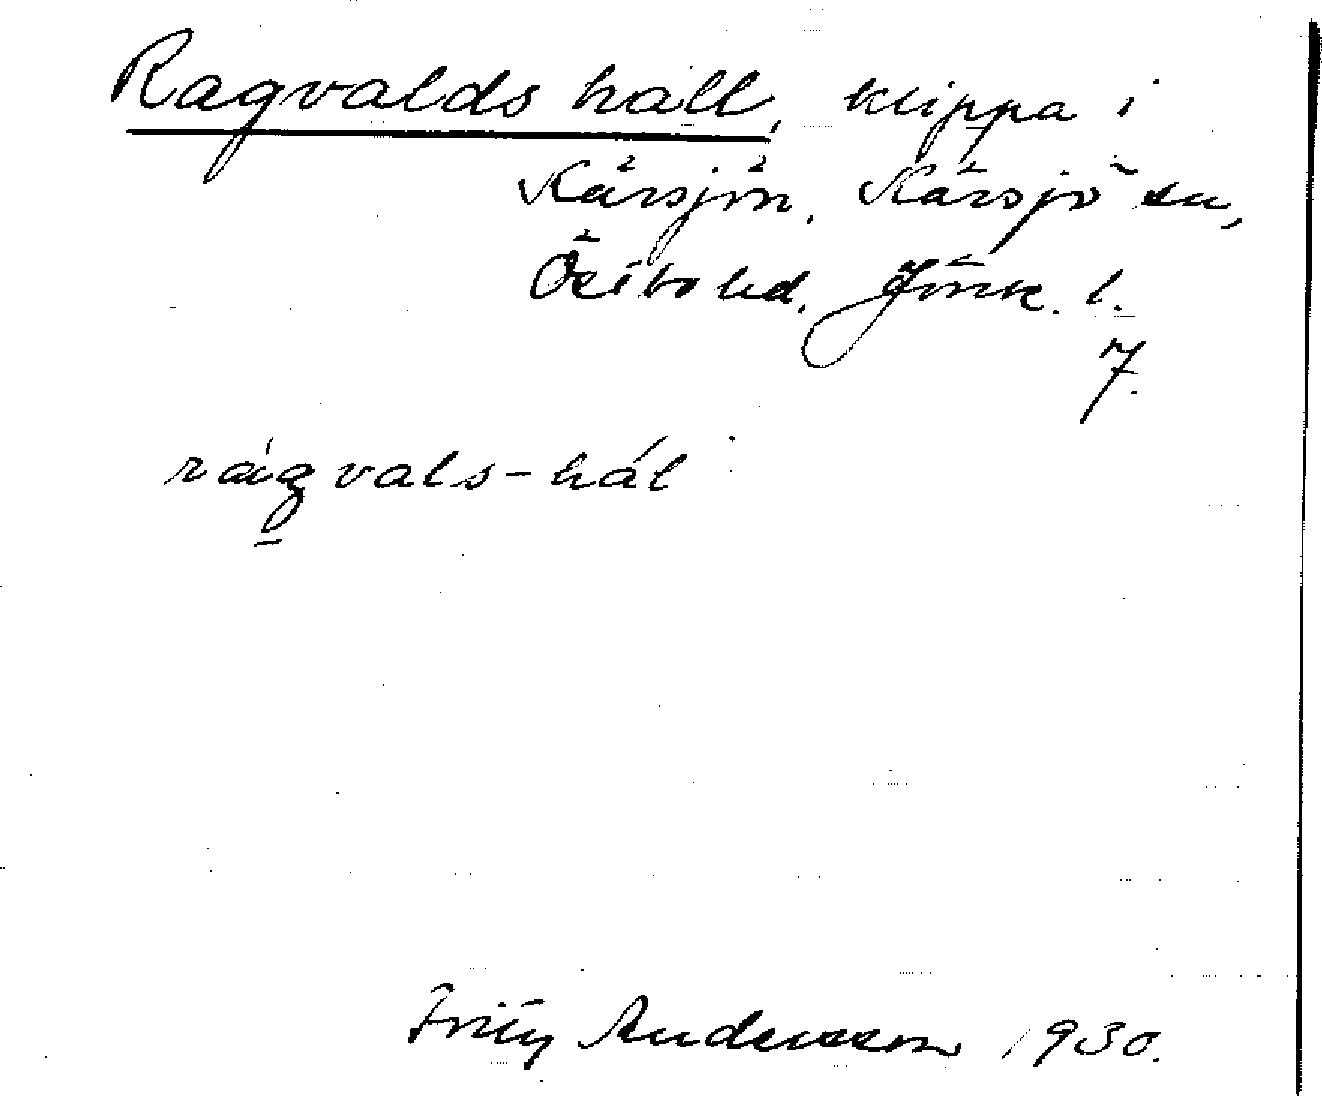 Ragvalds hall, klippa i
Kärsjön, Kärsjö sn,
Östbo hd, Jönk. l.
7.
rágvals-hál
Fritz Andersson 1930.